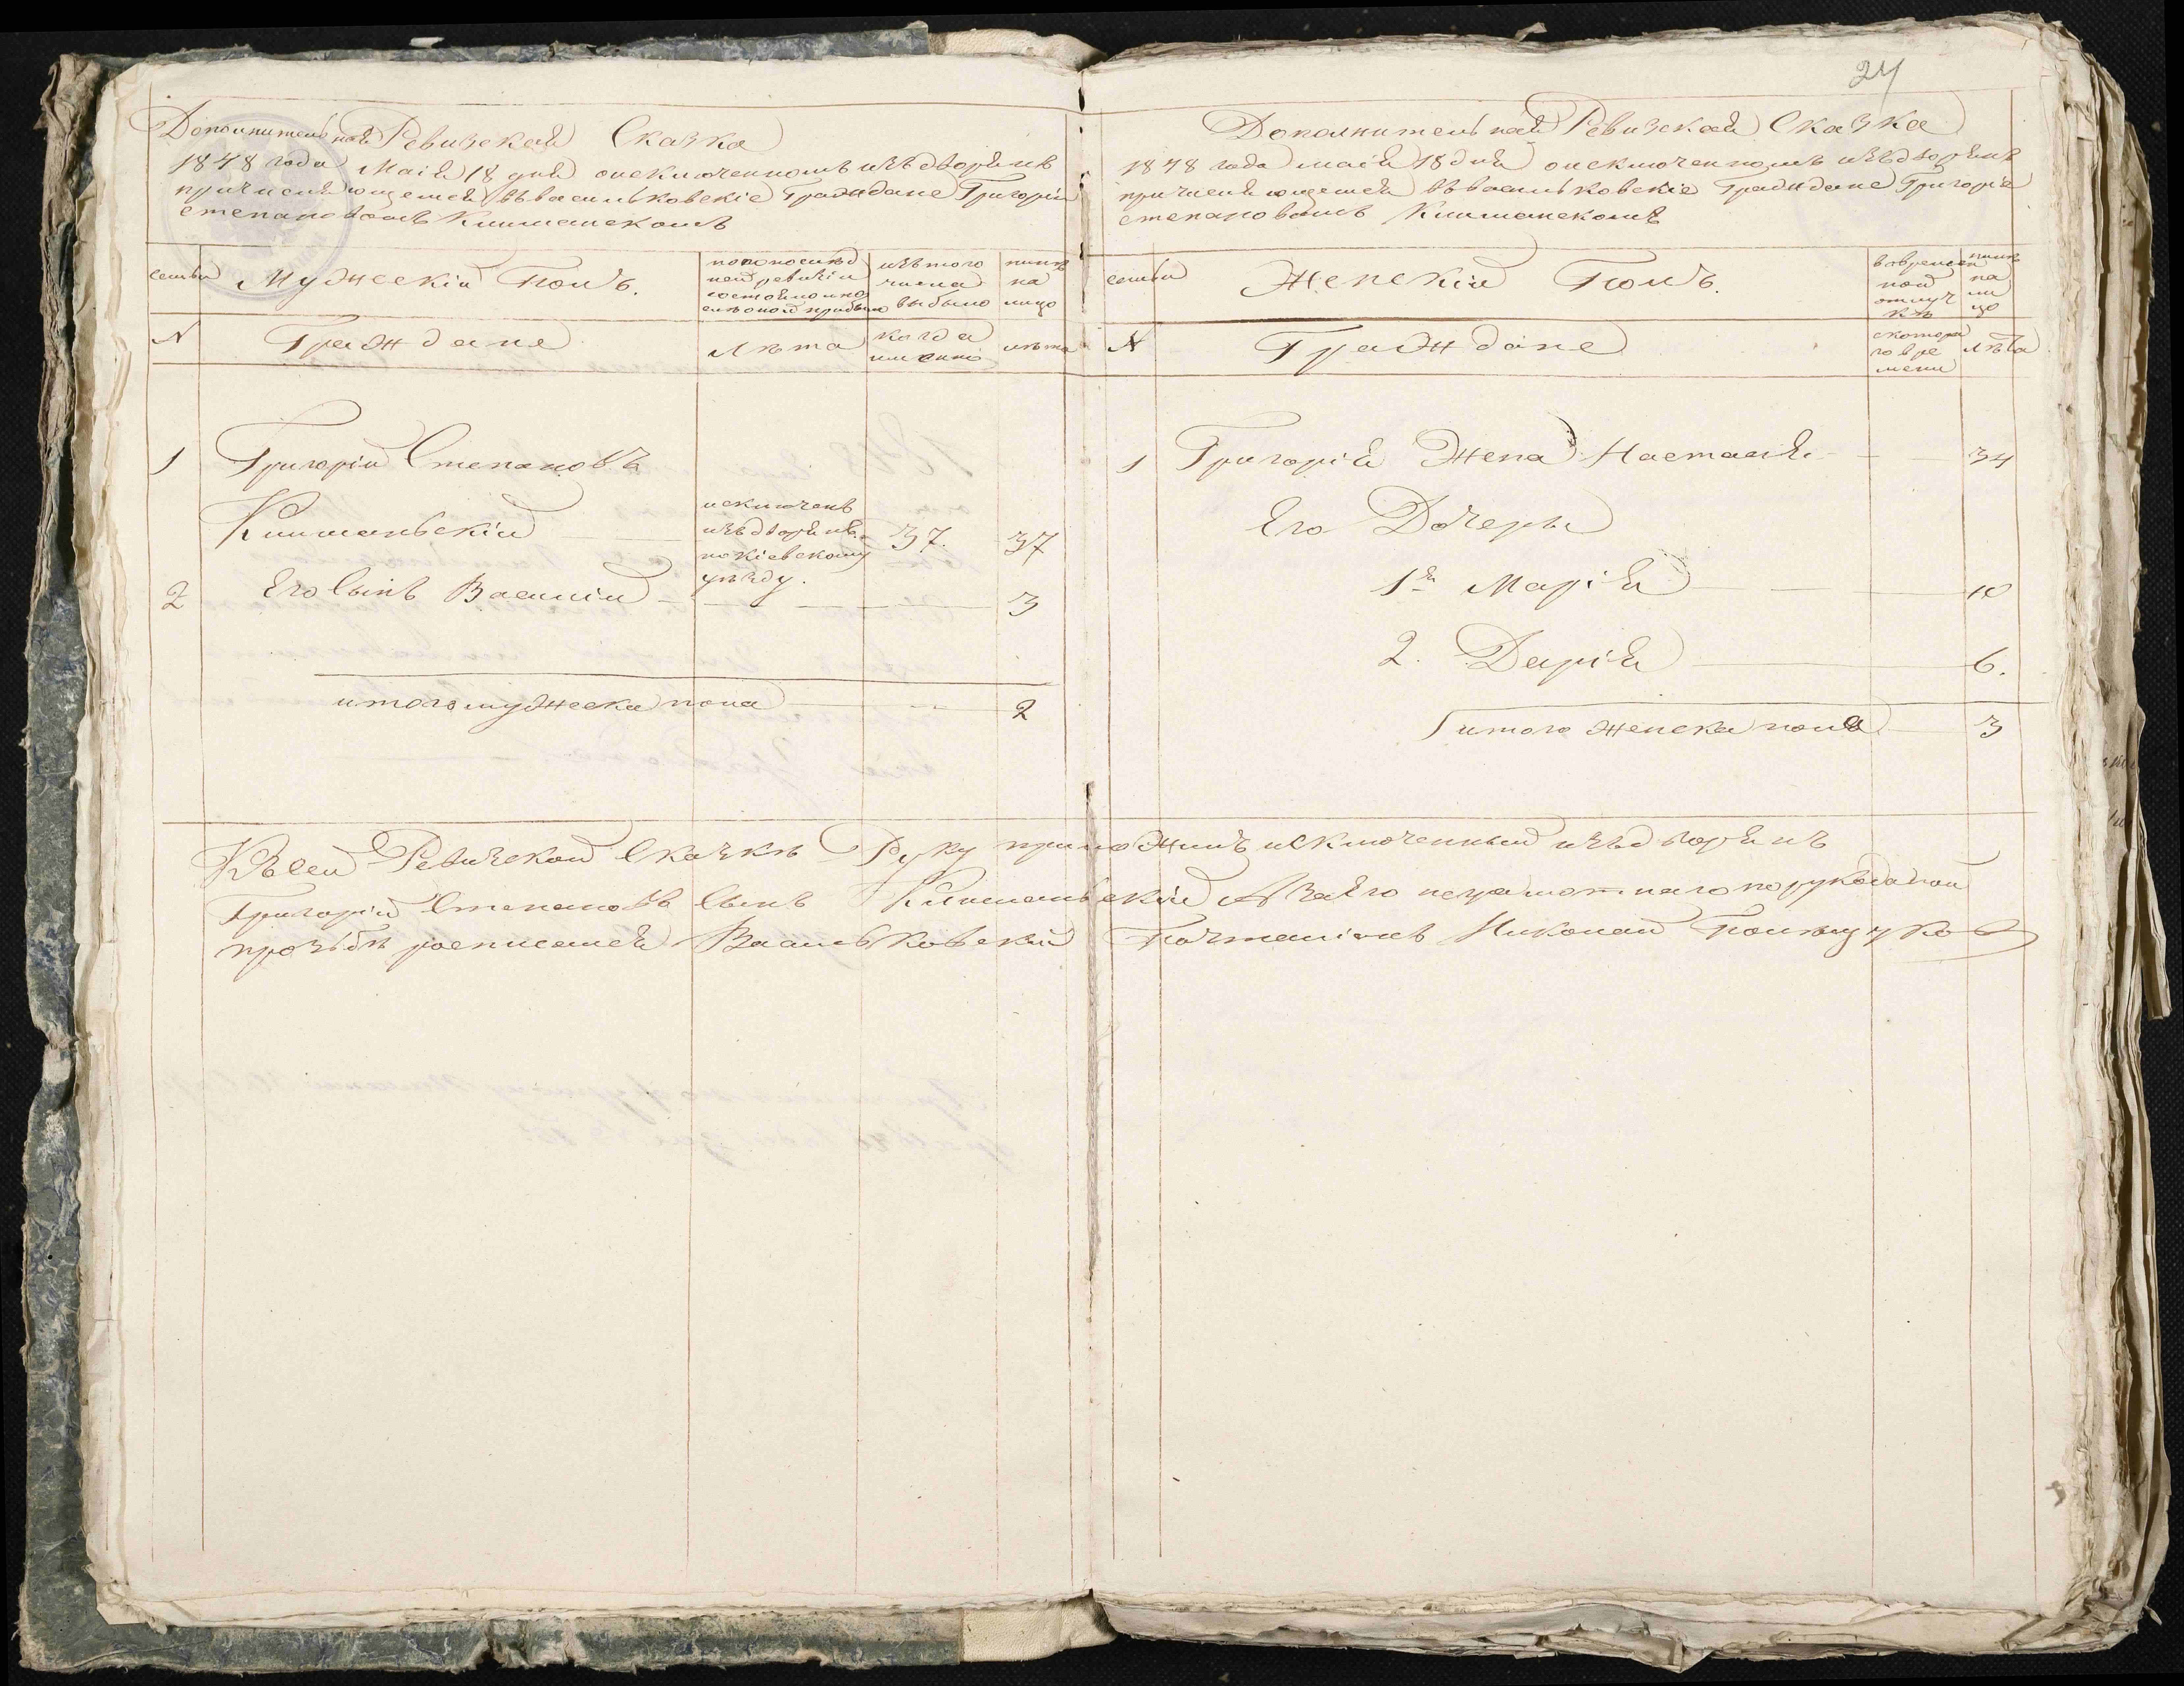 Дополнительная Ревизская Сказка
1848 года Маія 18 дня о исключенномъ изъ дворянъ
причисляющемся въ васильковскіе Граждане Григоріи
степановомъ Климанскомъ
семьи
Мужескій Полъ.
по послѣд
ней ревизіи
состояло и по
слѣ оной прибыло
изъ того
числа
выбыло
нынѣ
на
лицо
N
Граждане
Лѣта
когда
именно
лѣта
1
Григорій Степановъ
Климаньскій
исключенъ
изъ дворянъ
по кіевскому
уѣзду.
37.
37
2
Его Сынъ Василій
3
итого мужеска пола
2
24
Дополнительная Ревизская Сказка
1848 года маія 18 дня о исключенномъ изъ дворянъ
причисляющемся въ васильковскіе Граждане Григоріе
степановомъ Климанскомъ
семьи
Женскій Полъ.
во времен
ной
отлуч
кѣ
нынѣ
на
ли
цо
N
Граждане
с котора
го вре
мени
лѣта
1
Григорія Жена Настасія
34
Его Дочеры
1я Марія
10
2. Дарія
6.
итого женска пола
3
Къ сей Ревизской Сказкѣ Руку приложилъ исключенный изъ дворянъ
Григорій Степановъ Сынъ Климаньскій А за Его неграмотнаго по рукоданой
прозьбѣ росписался Васильковскій Почталіонъ Николай